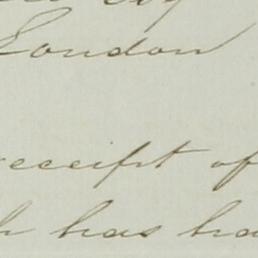 London
receipt of
has ha